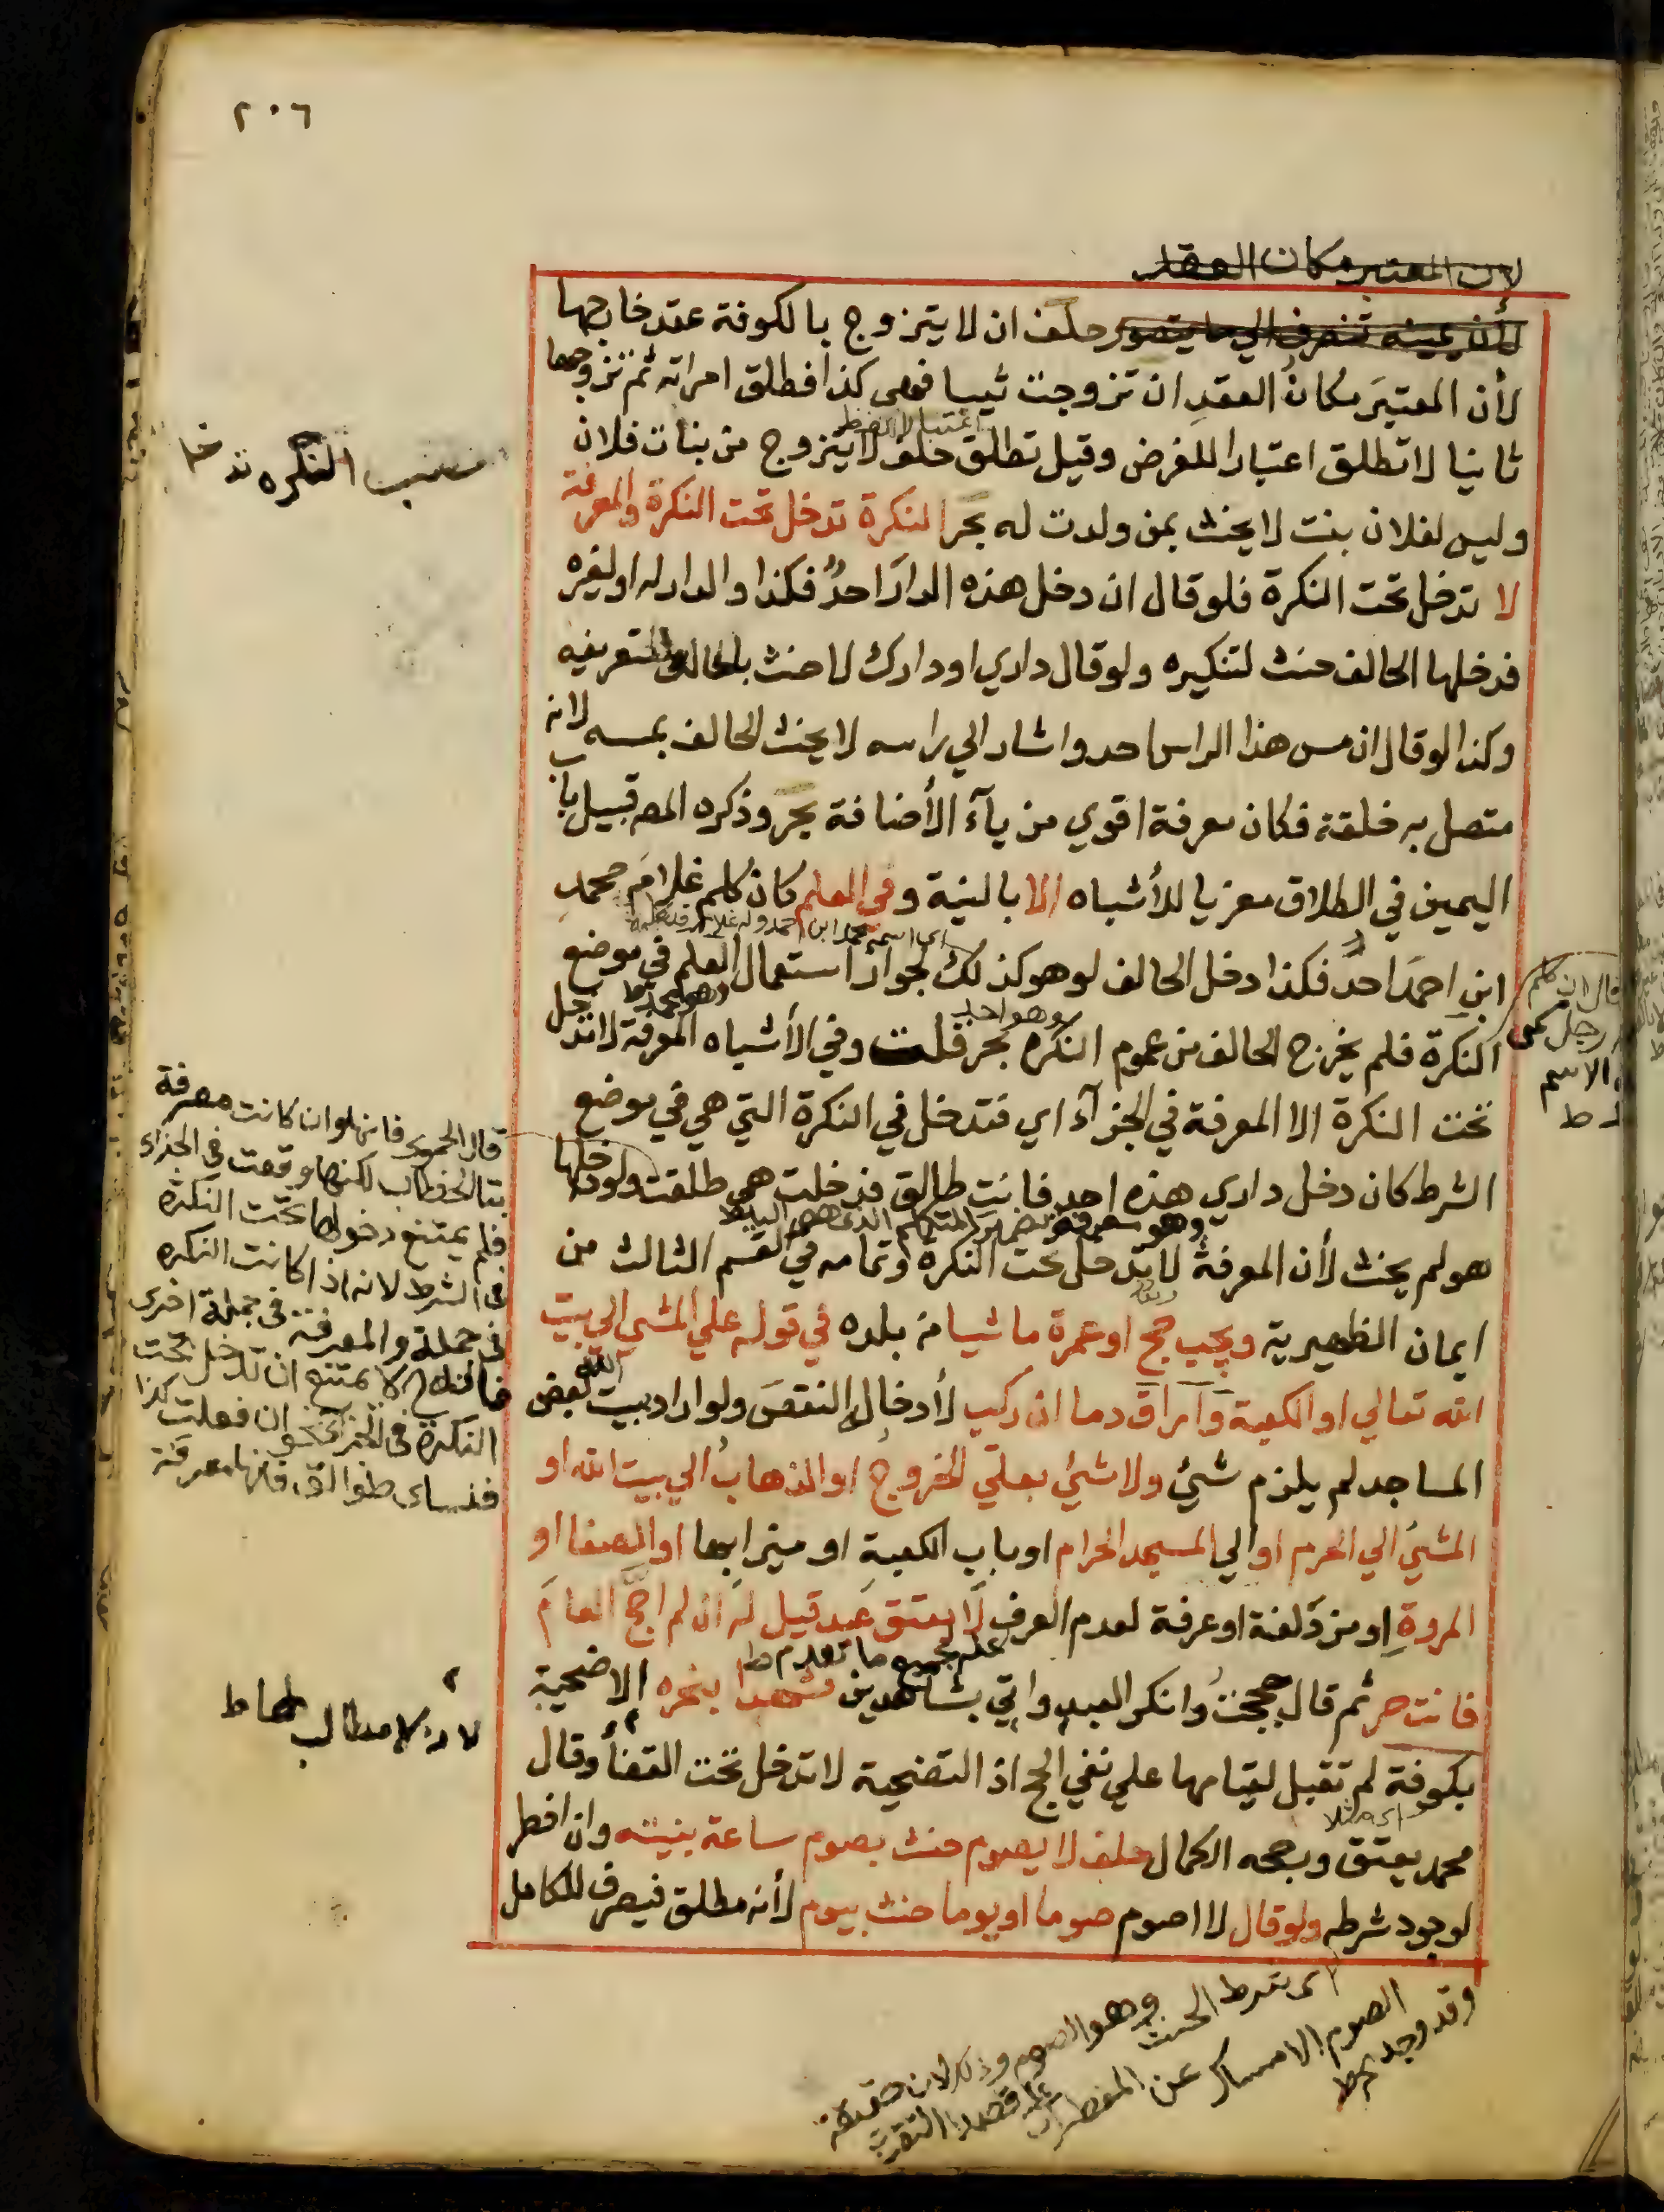 ٢٠٦
لان المعتبر مكان العقد
لأن يمينه تنصرف الي ما يتصور حلف ان لا يتزوج بالكوفة عقد خارجها
لأن المعتبَر مكانُ العقدِ ان تزوجت ثيبا فهى كذا فطلق امراته ثم تزوجها
اعتبارا للفظ
ثانيا لا تطلق اعتبارا للغرض وقيل تطلق حلف لا يتزوج من بنات فلان
وليس لفلان بنت لا يحنث بمن ولدت له بحر النكرة تدخل تحت النكرة والمعرفة
لا تدخل تحت النكرة فلو قال ان دخل هذه الدارَ احدٌ فكذا والدار له او لغيره
فدخلها الحالف حنث لتنكيره ولو قال داري او دارك لا حنث بالحالف لتعريفه
وكذا لو قال ان مس هذا الراس احد واشار الي راسه لا يحنث الحالف بمسه لانه
متصل به خلقة فكان معرفة اقوي من يآء الأضافة بحر وذكره المص قبيل باب
اليمين في الطلاق معزيا للأشباه الا بالنية وفي العلم كان كلم غلامَ محمدِ
اى اسمه محمد ابن احمد وله غلام
ابنِ احمدَ احدٌ فكذا دخل الحالف لو هو كذلك لجواز استعمال العلم في موضع
وهو احد
النكرة فلم يخرج الحالف من عموم النكرة بحر قلت وفي الأشباه المعرفة لا تدخل
تحت النكرة الا المعرفة في الجزآء اي فتدخل في النكرة التي هي في موضع
الشرط كان دخل داري هذه احد فانت طالق فدخلت هي طلقت ولو دخلها
وهو معرفة بضمير المتكلم الذى هو الياء ط
هو لم يحنث لأن المعرفة لا تدخل تحت النكرة وتمامه في القسم الثالث من
ايمان الظهيرية ويجب حج او عمرة ماشيا من بلده في قوله علي المشي الي بيت
الله تعالي او الكعبة وآراق دما ان ركب لأدخاله النقصَ ولو اراد ببيت الله بعض
المساجد لم يلزم شئ ولا شئ بعلي الخروج او الذهابُ الي بيت الله او
المشي الي الحرم او الي المسجد الحرام او باب الكعبة او ميزابها او الصفا او
المروةِ او مزدلفة او عرفة لعدم العرف لا يعتق عبد قيل له ان لم احج العامَ
علة لجميع ما تقدم ط
فانت حر ثم قال حججتُ وانكر العبد واتي بشاهدين شهدا بنحره الاضحية
بكوفة لم تقبل لقيامها علي نفي الحج اذ التضحية لا تدخل تحت القضاء وقال
اى مثلا
محمد يعتق ورجحه الكمال حلف لا يصوم حنث بصوم ساعة بنيته وان افطر
لوجود شرطه ولو قال لا اصوم صوما او يوما حنث بيوم لأنه مطلق فيصرف للكامل
النكره تدخل
قال ان كلم
رجل
الاسم
قال الحموى فانها وان كانت معرفة
بتا الخطاب لكنها وقعت في الجزاء
فلم يمتنع دخولها تحت النكرة
فى الشرط لانه اذا كانت النكره
فى جملة والمعرفة فى جملة اخرى
لا يمتنع ان تدخل تحت
النكرة فى الجزاء نحو ان فعلت كذا
فنساى طوالق فانها معرفة
لانه لا مطالب لها ط
اى شرط الحنث وهو الصوم وذلك لان حقيقة
الصوم الامساك عن المفطرات على قصد التقرب
وقد وجد ط